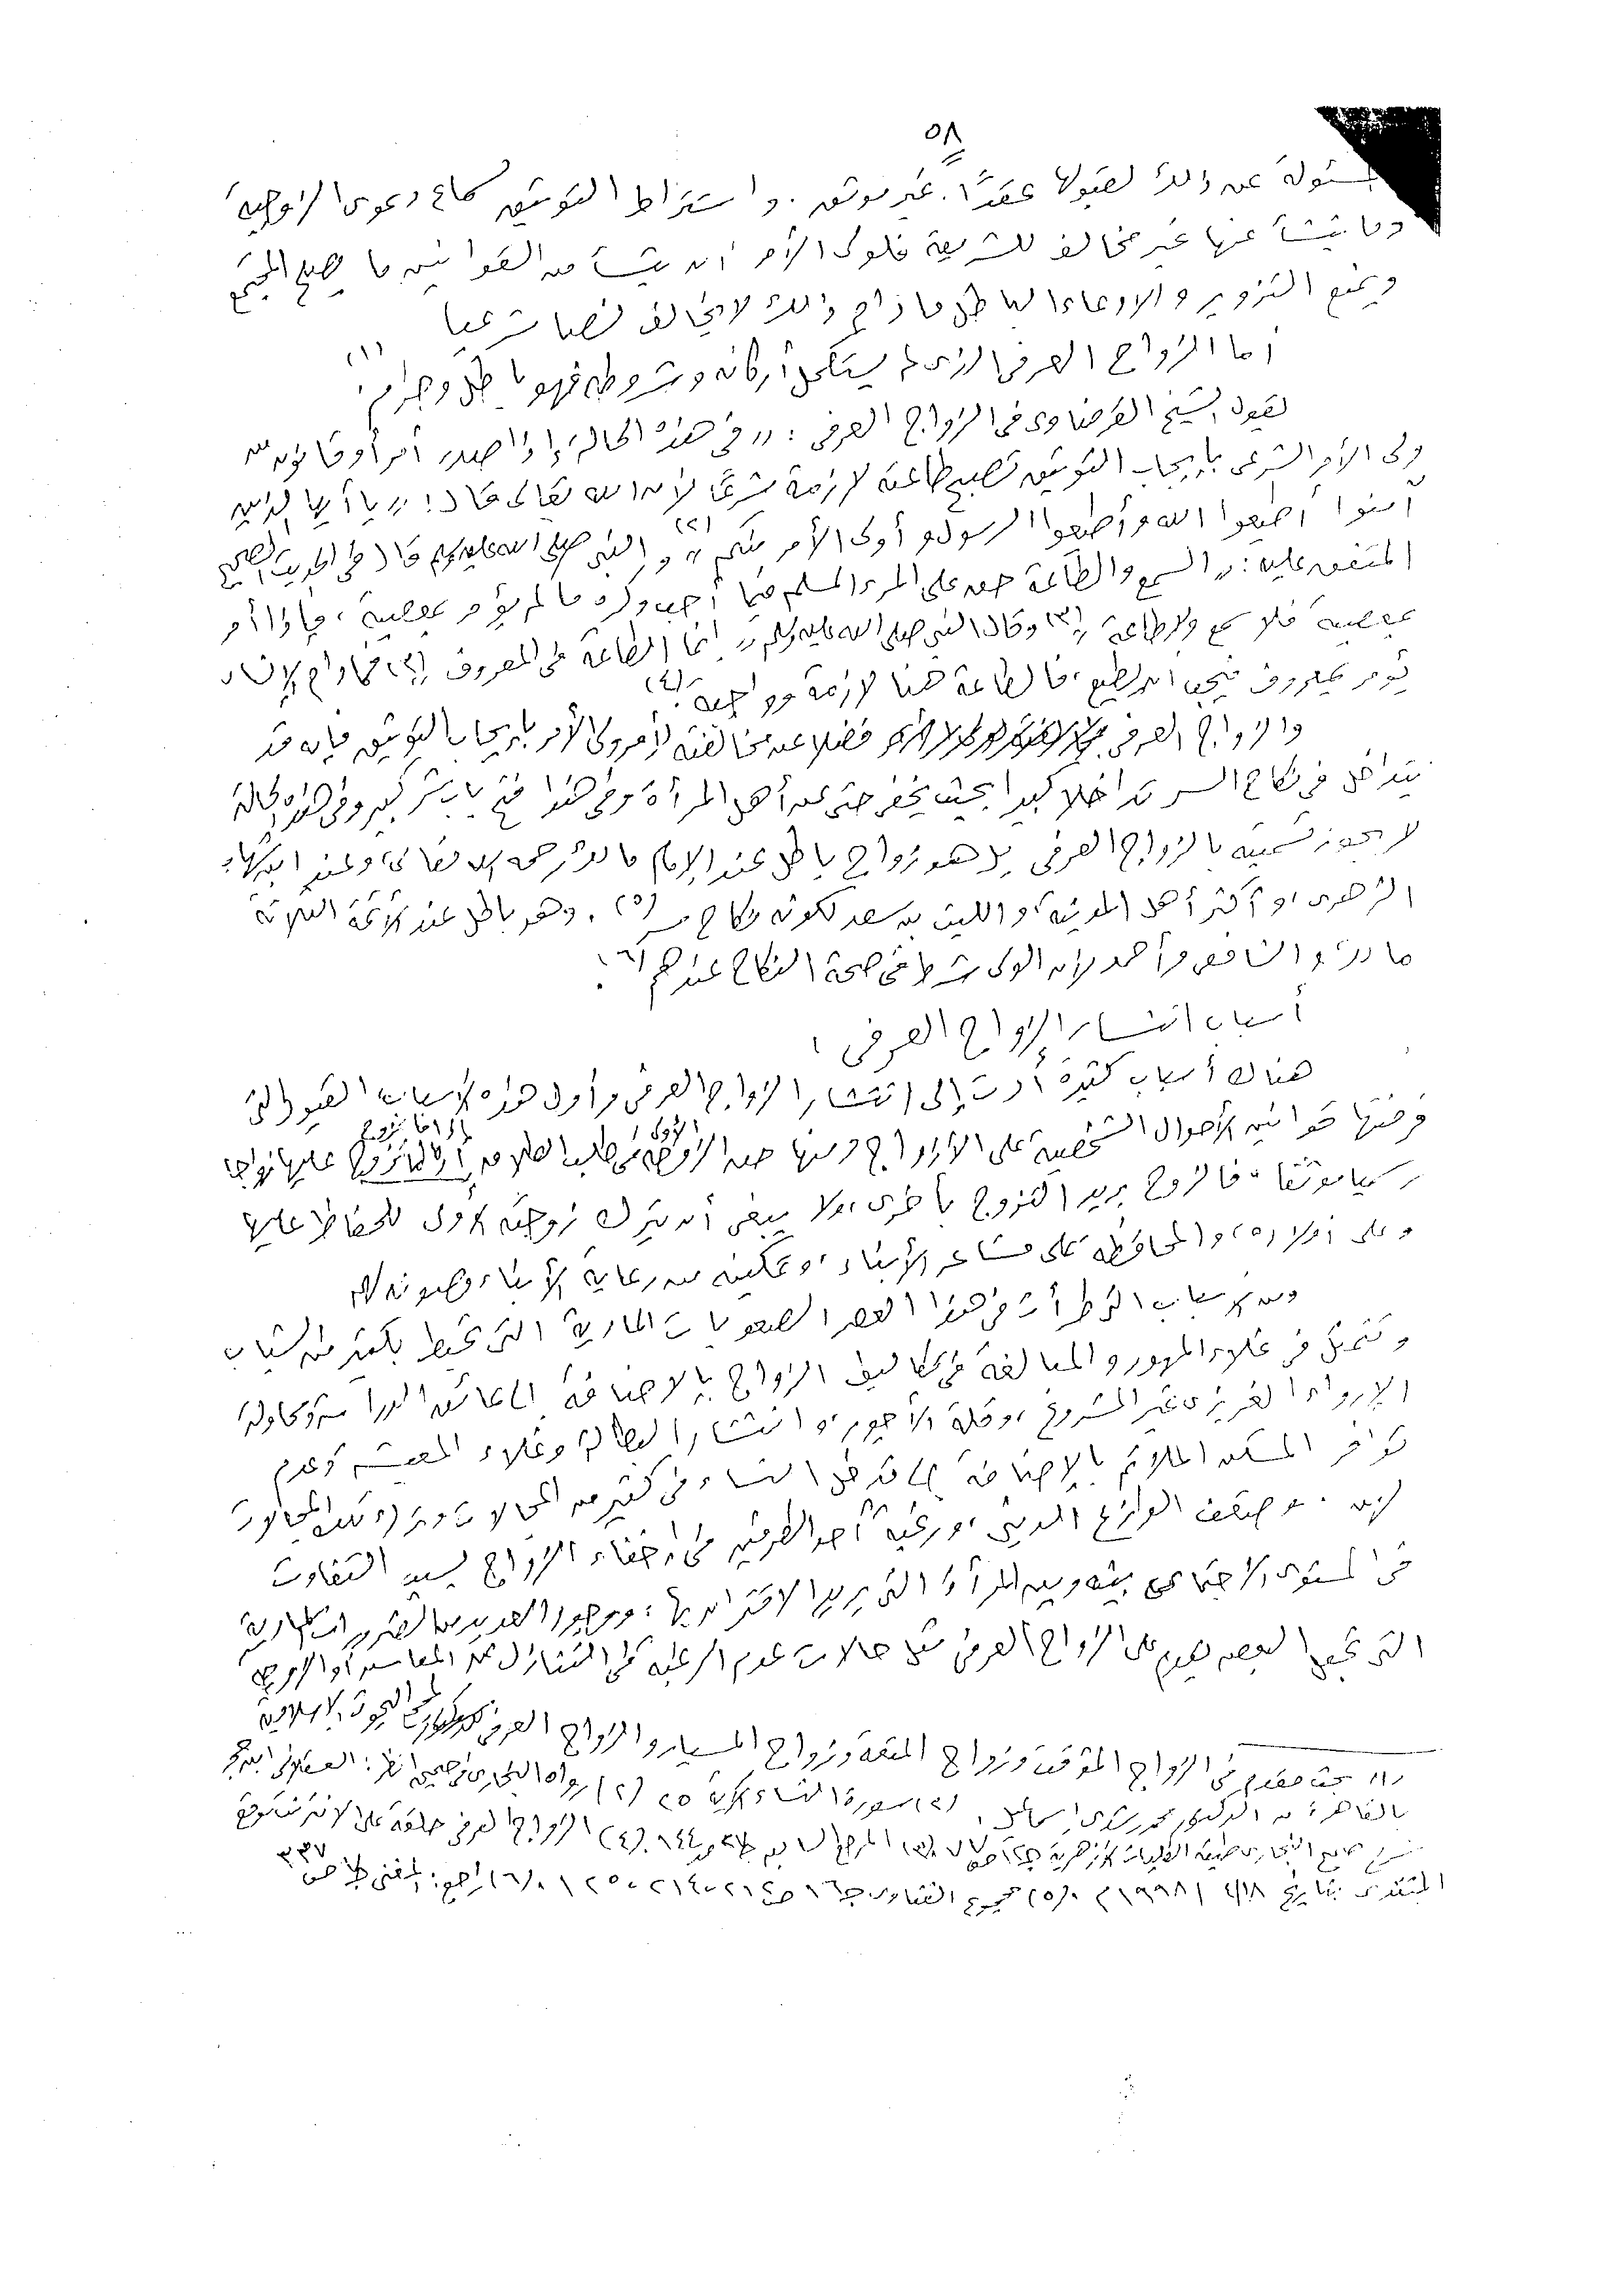 ٥٨
مسئولة عن ذلك لقبولها عقدًا غير موثق . واشتراط التوثيق لسماع دعوى الزوجية
وما ينشأ عنها غير مخالف للشريعة فلولى الأمر أن ينشأ من القوانين ما يصلح المجتمع
ويمنع التزوير والادعاء الباطل مادام ذلك لا يخالف نصا شرعيا
أما الزواج العرفى الذى لم يستكمل أركانه وشروطه فهو باطل وحرام (١)
يقول الشيخ القرضاوى فى الزواج العرفى : " فى هذه الحالة إذا صدر أمر أو قانون من
ولى الأمر الشرعى بإيجاب التوثيق تصبح طاعته لازمة شرعًا لأن الله تعالى قال : " يا أيها الذين
آمنوا أطيعوا الله وأطيعوا الرسول وأولى الأمر منكم " (٢) والنبى صلى الله عليه وسلم قال فى الحديث الصحيح
المتفق عليه : " السمع والطاعة حق على المرء المسلم فيما أحب وكره ما لم يؤمر بمعصية ، فإذا أمر
بمعصية فلا سمع ولا طاعة " (٣) وقال النبى صلى الله عليه وسلم " إنما الطاعة فى المعروف " فما دام الإنسان
يؤمر بمعروف فيجب أن يطيع ، فالطاعة هنا لازمة وواجبة (٤)
والزواج العرفى فضلا عن مخالفته لأمر ولى الأمر بإيجاب التوثيق فإنه قد
يتداخل فى نكاح السر تداخلا كبيرا بحيث يخفى حتى عن أهل المرأة وفى هذا فتح باب شر كبير وفى هذه الحالة
لا يجوز تسميته بالزواج العرفى بل هو زواج باطل عند الإمام مالك رحمه الله تعالى وعند ابن شهاب
الزهرى ، وأكثر أهل المدينة ، والليث بن سعد لكونه نكاح سر (٥) ، وهو باطل عند الأئمة الثلاثة
مالك والشافعى وأحمد لأن الولى شرط فى صحة النكاح عندهم (٦) .
أسباب انتشار الزواج العرفى :
هناك أسباب كثيرة أدت إلى انتشار الزواج العرفى وأول هذه الأسباب القيود التى
فرضتها قوانين الأحوال الشخصية على الأزواج ومنها حق الزوجة الأولى فى طلب الطلاق إذا ما تزوج عليها زواجا
رسميا موثقا ، فالزوج يريد التزوج بأخرى ، ولا يبغى أن يترك زوجته الأولى للحفاظ عليها
وعلى أولاده ، والمحافظة على مشاعر الأبناء ، وتمكينه من رعاية الأبناء وصونه لهم
ومن الأسباب التى طرأت فى هذا العصر الصعوبات المادية التى تحيط بكثير من الشباب
وتتمثل فى غلاء المهور والمبالغة فى تكاليف الزواج بالاضافة إلى عائق الدراسة ومحاولة
الإرواء الغريزى غير المشروع ، وقلة الأجور ، وانتشار البطالة وغلاء المعيشة وعدم
توافر المسكن الملائم بالإضافة إلى تدخل النساء فى كثير من المجالات
وضعف الوازع الدينى ، ورغبة أحد الطرفين فى إخفاء الزواج بسبب التفاوت
فى المستوى الاجتماعى بينه وبين المرأة التى يريد الاقتران بها ، ووجود العديد من الضرورات المادية
التى تجعل البعض يقدم على الزواج العرفى مثل حالات عدم الرغبة فى التنازل عن المعاش أو الزوجة
(١) بحث مقدم فى الزواج المؤقت وزواج المتعة وزواج المسيار والزواج العرفى لمجمع البحوث الإسلامية
بالقاهرة من الدكتور محمد رشدى إسماعيل . (٢) سورة النساء الآية ٥٩ (٣) رواه البخارى فى صحيحه انظر : العسقلانى ابن حجر
شرح صحيح البخارى طبعة الكليات الأزهرية المرجع السابق (٤) الزواج العرفى حلقة على الانترنت موقع
المنتدى بتاريخ ١٩٩٨ م . (٥) مجموع الفتاوى (٦) راجع : المغنى